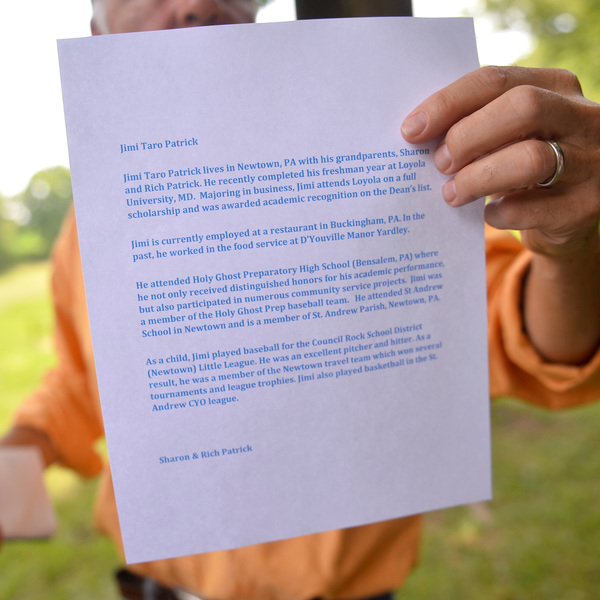 Jimi Taro Patrick
Jimi Taro Patrick lives in Newtown, PA with his grandparents, Sharon
and Rich Patrick. He recently completed his freshman year at Loyola
University, MD.  Majoring in business, Jimi attends Loyola on a full
scholarship and was awarded academic recognition on the Dean's list.
Jimi is currently employed at a restaurant in Buckingham, PA. In the
past, he worked in the food service at D'Youville Manor Yardley.
He attended Holy Ghost Preparatory High School (Bensalem, PA) where
he not only received distinguished honors for his academic performance,
but also participated in numerous community service projects.  Jimi was
a member of the Holy Ghost Prep baseball team.   He attended St Andrew
School in Newtown and is a member of St. Andrew Parish, Newtown, PA.
As a child, Jimi played baseball for the Council Rock School District
(Newtown) Little League. He was an excellent pitcher and hitter. As a
result, he was a member of the Newtown travel team which won several
tournaments and league trophies. Jimi also played basketball in the St.
Andrew CYO league.
Sharon & Rich Patrick